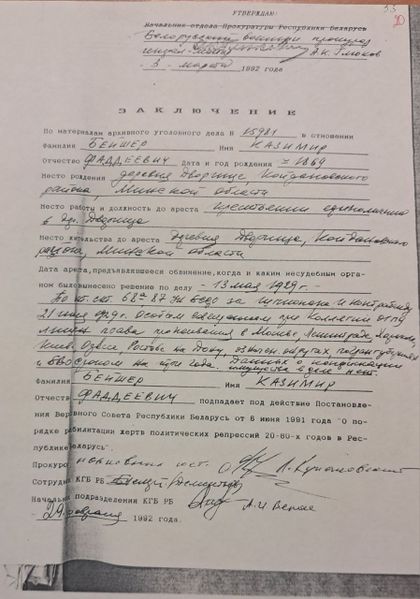 33
УТВЕРЖДАЮ:
Начальник отдела Прокуратуры Республики Беларусь
Белорусский военный прокурор
А.И. Глюков
"3" марта 1992 года
ЗАКЛЮЧЕНИЕ
По материалам архивного уголовного дела № 15981 в отношении
Фамилия БЕЙШЕР Имя КАЗИМИР
Отчество ФАДДЕЕВИЧ Дата и год рождения - 1869
Место рождения деревня Дворище, Койдановского
района, Минской области
Место работы и должность до ареста крестьянин единоличник
в др. Дворище
Место жительства до ареста деревня Дворище, Койдановского
района, Минской области
Дата ареста, предъявлявшееся обвинение, когда и каким несудебным орга-
ном было вынесено решение по делу - 13 мая 1929 г. -
По ст. ст. 68а, 87 УК БССР за шпионаж и контрабанду
1929 г. Особым совещанием при Коллегии ОГПУ
лишен права проживания в Москве, Ленинграде, Харькове,
Киеве, Одессе, Ростове на Дону, округах, погран. губерниях
и БВО сроком на три года. Данных о конфискации
имущества в деле нет.
Фамилия БЕЙШЕР Имя КАЗИМИР
Отчество ФАДДЕЕВИЧ подпадает под действие Постановле-
ния Верховного Совета Республики Беларусь от 6 июня 1991 года "О по-
рядке реабилитации жертв политических репрессий 20-80-х годов в Рес-
публике Беларусь".
Прокурор полковник юст.
Сотрудник КГБ РБ
Начальник подразделения КГБ РБ
"29" февраля 1992 года.